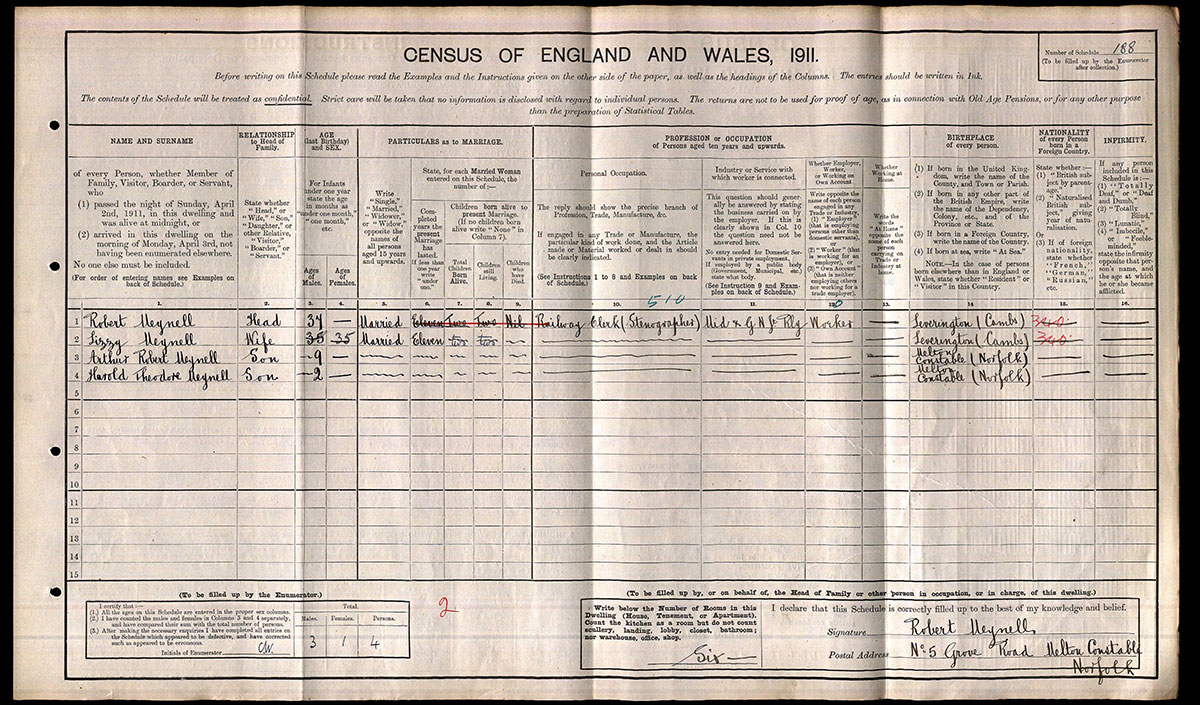 CENSUS OF ENGLAND AND WALES, 1911.
Number of Schedule 188
(To be filled up by the Enumerator
after collection.)
Before writing on this Schedule please read the Examples and the Instructions given on the other side of the paper, as well as the headings of the Columns. The entries should be written in Ink.
The contents of the Schedule will be treated as confidential. Strict care will be taken that no information is disclosed with regard to individual persons. The returns are not to be used for proof of age, as in connection with Old Age Pensions, or for any other purpose
than the preparation of Statistical Tables.
NAME AND SURNAME
of every Person, whether Member of
Family, Visitor, Boarder, or Servant,
who
(1) passed the night of Sunday, April
2nd, 1911, in this dwelling and
was alive at midnight, or
(2) arrived in this dwelling on the
morning of Monday, April 3rd, not
having been enumerated elsewhere.
No one else must be included.
(For order of entering names see Examples on
back of Schedule.)
1.
RELATIONSHIP
to Head of
Family.
State whether
"Head," or
"Wife," "Son,"
"Daughter," or
other Relative,
"Visitor,"
"Boarder," or
"Servant."
2.
AGE
(last Birthday)
and SEX.
For Infants
under one year
state the age
in months as
"under one month,"
"one month,"
etc.
Ages
of
Males.
Ages
of
Females.
3.
4.
PARTICULARS as to MARRIAGE.
Write
"Single,"
"Married,"
"Widower,"
or "Widow,"
opposite the
names of
all persons
aged 15 years
and upwards.
5.
State, for each Married Woman
entered on this Schedule, the
number of:—
Com-
pleted
years the
present
Marriage
has
lasted.
If less than
one year
write
"under
one."
6.
Children born alive to
present Marriage.
(If no children born
alive write "None" in
Column 7).
Total
Children
Born
Alive.
7.
Children
still
Living.
8.
Children
who
have
Died.
9.
PROFESSION or OCCUPATION
of Persons aged ten years and upwards.
Personal Occupation.
The reply should show the precise branch of
Profession, Trade, Manufacture, &c.
If engaged in any Trade or Manufacture, the
particular kind of work done, and the Article
made or Material worked or dealt in should
be clearly indicated.
(See Instructions 1 to 8 and Examples on back
of Schedule.)
10.
510
Industry or Service with
which worker is connected.
This question should gener-
ally be answered by stating
the business carried on by
the employer. If this is
clearly shown in Col. 10
the question need not be
answered here.
No entry needed for Domestic Ser-
vants in private employment.
If employed by a public body
(Government, Municipal, etc.)
state what body.
(See Instruction 9 and Exam-
ples on back of Schedule.)
11.
Whether Employer,
Worker,
or Working on
Own Account
Write opposite the
name of each person
engaged in any
Trade or Industry,
(1) "Employer"
(that is employing
persons other than
domestic servants),
or
(2) "Worker" (that
is working for an
employer), or
(3) "Own Account"
(that is neither
employing others
nor working for a
trade employer).
12.
0
Whether
Working at
Home.
Write the
words
"At Home"
opposite the
name of each
person
carrying on
Trade or
Industry at
home.
13.
BIRTHPLACE
of every person.
(1) If born in the United King-
dom, write the name of the
County, and Town or Parish.
(2) If born in any other part of
the British Empire, write
the name of the Dependency,
Colony, etc., and of the
Province or State.
(3) If born in a Foreign Country,
write the name of the Country.
(4) If born at sea, write "At Sea."
NOTE.—In the case of persons
born elsewhere than in England or
Wales, state whether "Resident" or
"Visitor" in this Country.
14.
NATIONALITY
of every Person
born in a
Foreign Country.
State whether:—
(1) "British sub-
ject by parent-
age,"
(2) "Naturalised
British sub-
ject," giving
year of natu-
ralisation.
Or
(3) If of foreign
nationality,
state whether
"French,"
"German,"
"Russian,"
etc.
15.
INFIRMITY.
If any person
included in this
Schedule is:—
(1) "Totally
Deaf," or "Deaf
and Dumb,"
(2) "Totally
Blind,"
(3) "Lunatic,"
(4) "Imbecile,"
or "Feeble-
minded,"
state the infirmity
opposite that per-
son's name, and
the age at which
he or she became
afflicted.
16.
1 Robert Meynell Head 37 — Married Eleven Two Two Nil Railway Clerk (Stenographer) Mid & G N Jt Rly Worker — Leverington (Cambs) 340
2 Lizzy Meynell Wife 35 35 Married Eleven two two Leverington (Cambs) 340
3 Arthur Robert Meynell Son 9 — Melton Constable (Norfolk)
4 Harold Theodore Meynell Son 2 — Melton Constable (Norfolk)
5
6
7
8
9
10
11
12
13
14
15
(To be filled up by the Enumerator.)
I certify that:—
(1.) All the ages on this Schedule are entered in the proper sex columns.
(2.) I have counted the males and females in Columns 3 and 4 separately,
and have compared their sum with the total number of persons.
(3.) After making the necessary enquiries I have completed all entries on
the Schedule which appeared to be defective, and have corrected
such as appeared to be erroneous.
Initials of Enumerator
Total.
Males. Females. Persons.
3 1 4
2
(To be filled up by, or on behalf of, the Head of Family or other person in occupation, or in charge, of this dwelling.)
Write below the Number of Rooms in this
Dwelling (House, Tenement, or Apartment).
Count the kitchen as a room but do not count
scullery, landing, lobby, closet, bathroom;
nor warehouse, office, shop.
Six
I declare that this Schedule is correctly filled up to the best of my knowledge and belief.
Signature Robert Meynell
Postal Address No 5 Grove Road Melton Constable
Norfolk